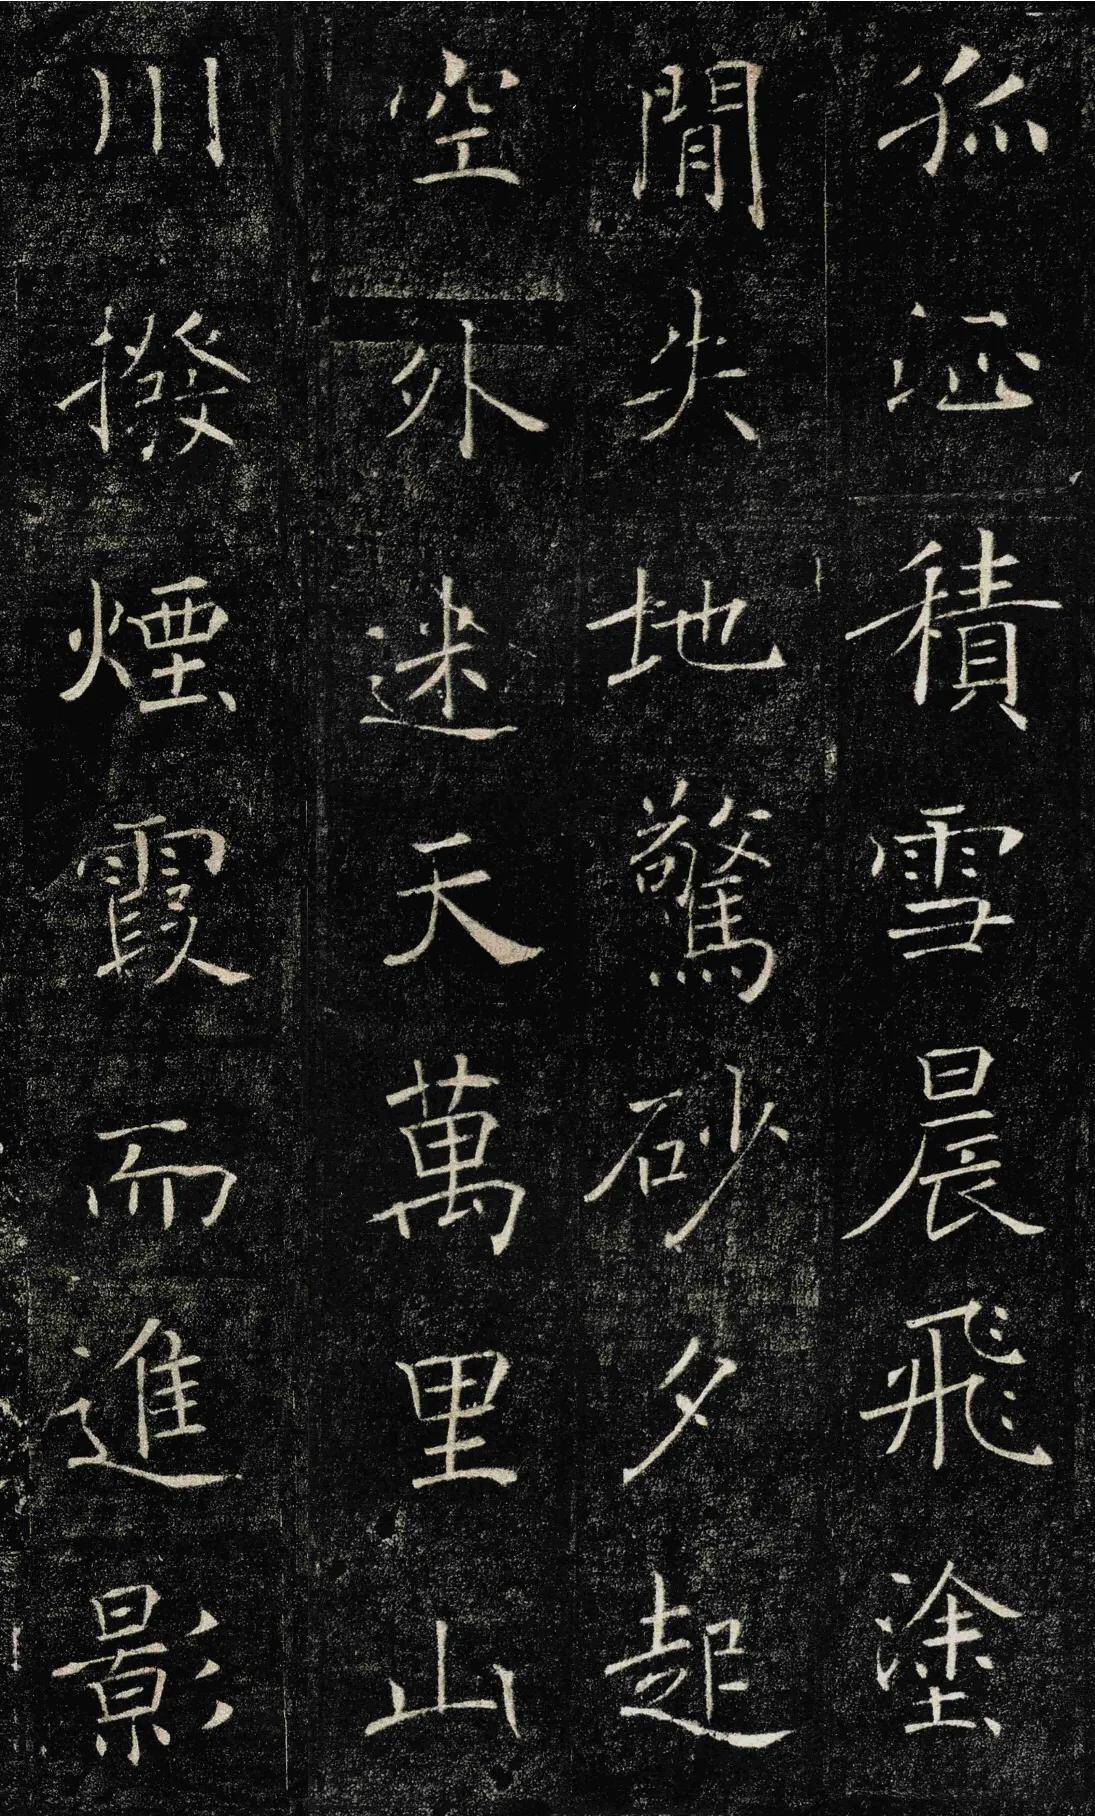 孤征積雪晨飛塗
閒失地驚砂夕起
空外迷天萬里山
川撥煙霞而進影